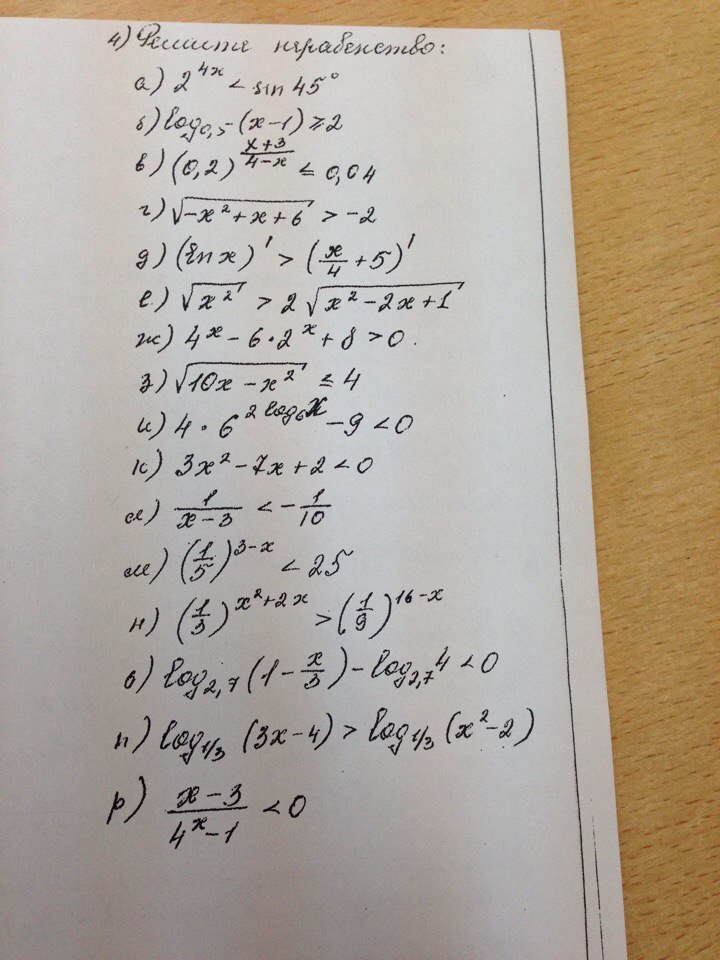 4) Решите неравенство:
а) 2^{4x} < sin 45°
б) log_{0,5} (x-1) ≥ 2
в) (0,2)^{\frac{x+3}{4-x}} ≤ 0,04
г) √(-x² + x + 6) > -2
д) (ln x)' > (\frac{x}{4} + 5)'
е) √(x²) > 2 √(x² - 2x + 1)
ж) 4^x - 6 · 2^x + 8 > 0.
з) √(10x - x²) ≤ 4
и) 4 · 6^{2 log_6 x} - 9 < 0
к) 3x² - 7x + 2 < 0
л) \frac{1}{x-3} < -\frac{1}{10}
м) (\frac{1}{5})^{3-x} < 25
н) (\frac{1}{3})^{x²+2x} > (\frac{1}{9})^{16-x}
о) log_{2,7} (1 - \frac{x}{3}) - log_{2,7} 4 < 0
п) log_{1/3} (3x-4) > log_{1/3} (x²-2)
р) \frac{x-3}{4^x-1} < 0